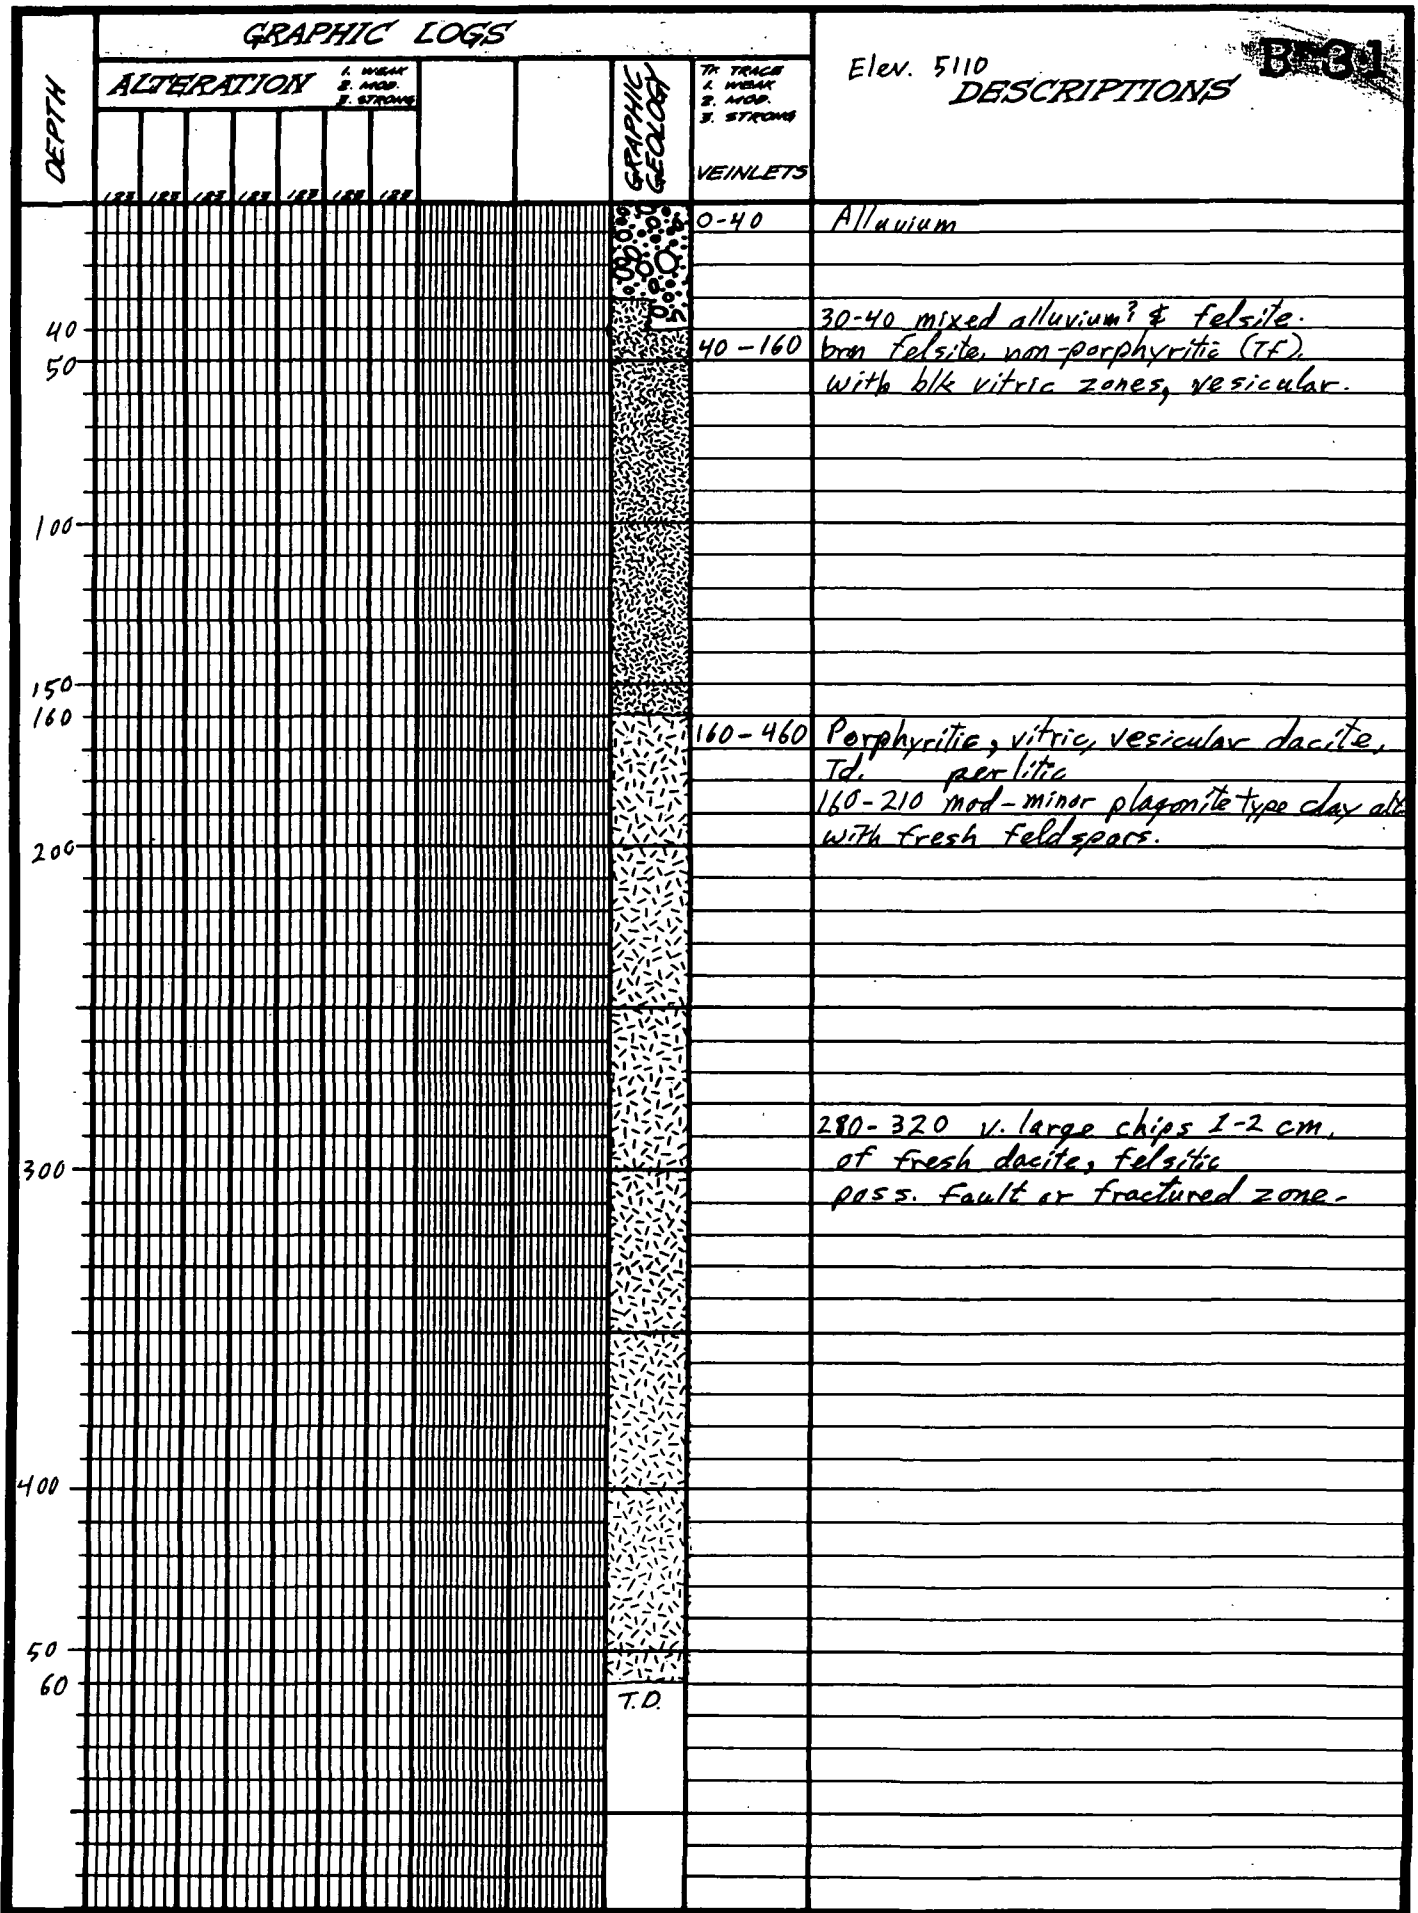 GRAPHIC LOGS
DEPTH
ALTERATION
1. WEAK
2. MOD.
3. STRONG
123 123 123 123 123 123 123
GRAPHIC
GEOLOGY
TR TRACE
1. WEAK
2. MOD.
3. STRONG
VEINLETS
Elev. 5110
DESCRIPTIONS
B-31
0-40 Alluvium
30-40 mixed alluvium? & felsite.
40
40-160 brn felsite, non-porphyritic (Tf)
50
with blk vitric zones, vesicular.
100
150
160
160-460 Porphyritic, vitric, vesicular dacite,
Td. perlitic
160-210 mod-minor plagonite type clay alt
with fresh feldspars.
200
280-320 v. large chips 1-2 cm.
of fresh dacite, felsitic
300
poss. fault or fractured zone.
400
50
60
T.D.